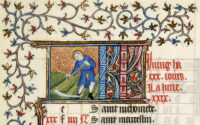 Juing ha
xxx. iours.
La lune
xxx.
e S aint nichomede.
xxx f iiii N S aint marcelin.